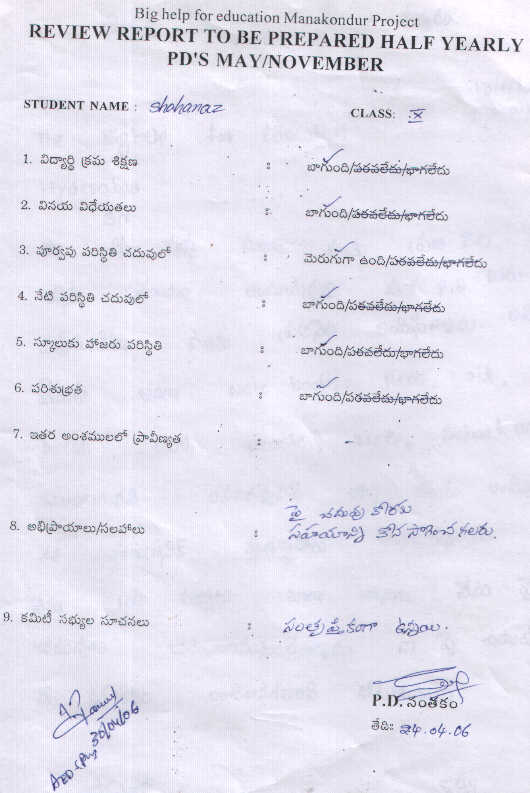 Big help for education Manakondur Project
REVIEW REPORT TO BE PREPARED HALF YEARLY
PD'S MAY/NOVEMBER
STUDENT NAME : Shahanaz CLASS: X
1. విద్యార్థి క్రమ శిక్షణ : బాగుంది/పరవలేదు/భాగలేదు
2. వినయ విధేయతలు : బాగుంది/పరవలేదు/భాగలేదు
3. పూర్వపు పరిస్థితి చదువులో : మెరుగుగా ఉంది/పరవలేదు/భాగలేదు
4. నేటి పరిస్థితి చదువులో : బాగుంది/పరవలేదు/భాగలేదు
5. స్కూలుకు హాజరు పరిస్థితి : బాగుంది/పరవలేదు/భాగలేదు
6. పరిశుభ్రత : బాగుంది/పరవలేదు/భాగలేదు
7. ఇతర అంశములలో ప్రావీణ్యత : -
8. అభిప్రాయాలు/సలహాలు : పై చదువు కొరకు
సహాయాన్ని కొన సాగించ గలరు.
9. కమిటీ సభ్యుల సూచనలు : సంతృప్తికరంగా ఉన్నాయి.
P.D. సంతకం
తేది: 24.04.06
30/04/06